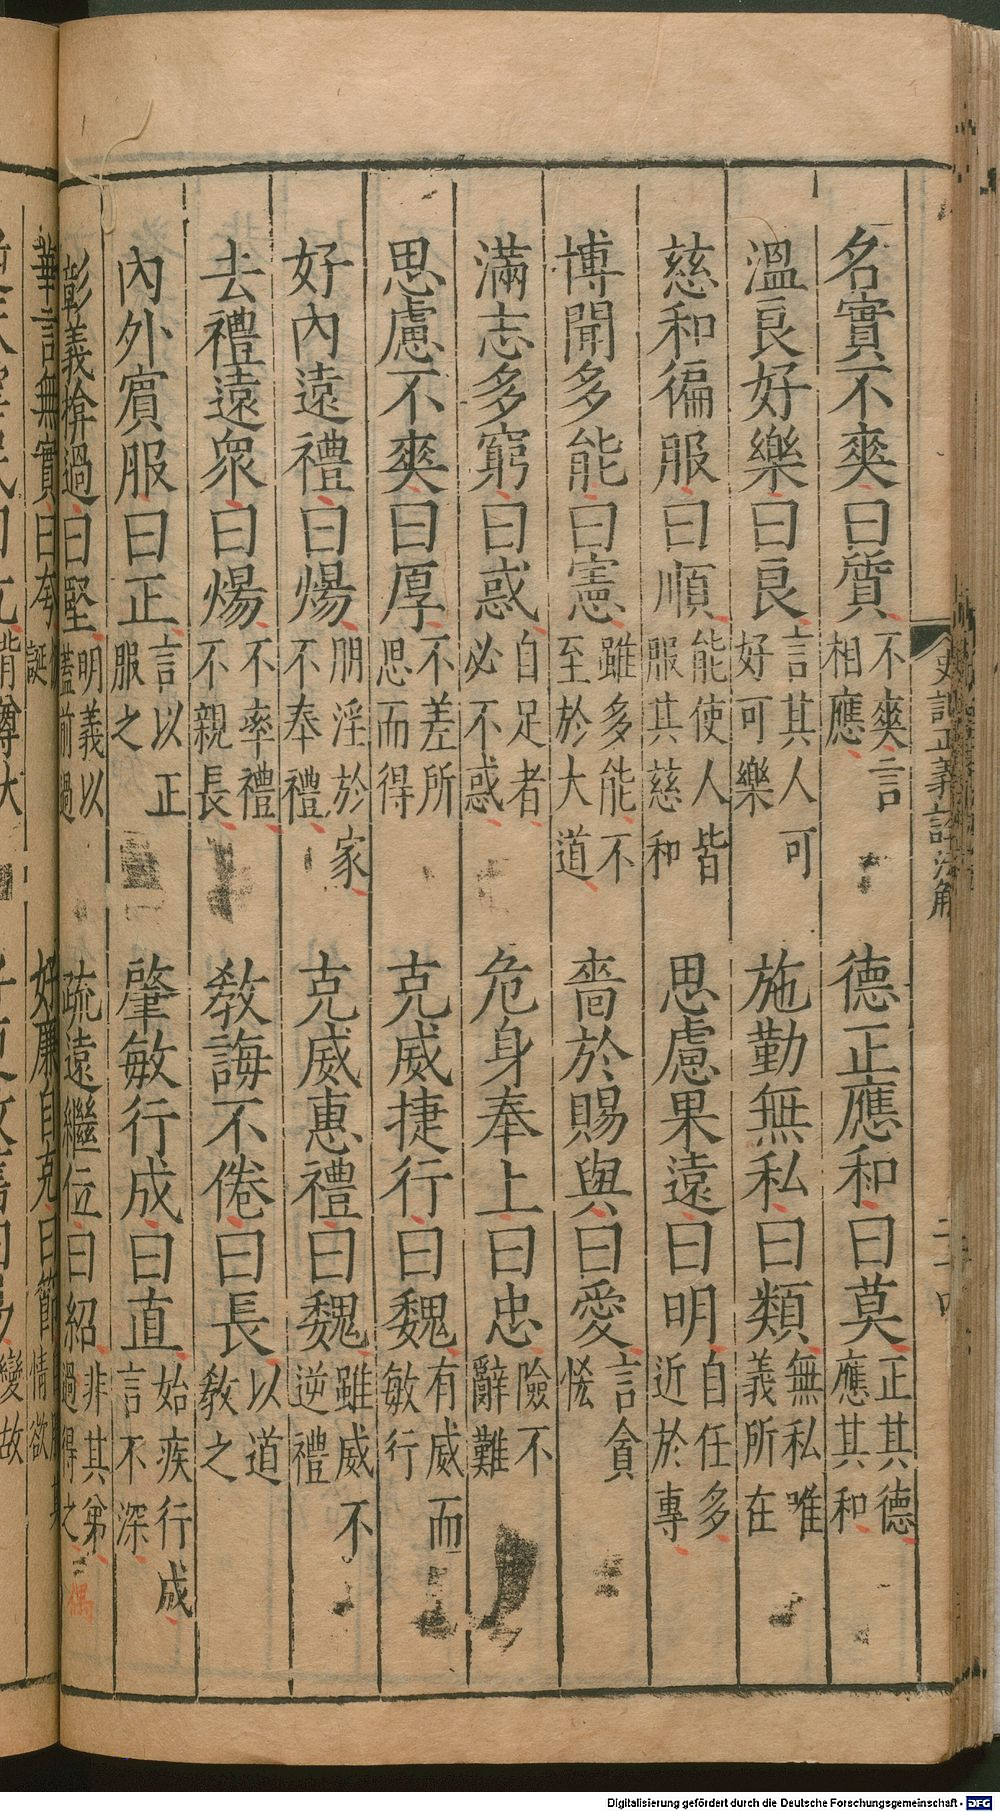 名實不爽曰質不爽言相應　德正應和曰莫正其德應其和
溫良好樂曰良言其人可好可樂　施勤無私曰類無私唯義所在
慈和徧服曰順能使人皆服其慈和　思慮果遠曰明自任多近於專
博聞多能曰憲雖多能不至於大道　嗇於賜與曰愛言貪恡
滿志多窮曰惑自足者必不惑　危身奉上曰忠險不辭難
思慮不爽曰厚不差所思而得　克威捷行曰魏有威而敏行
好內遠禮曰煬朋淫於家不奉禮　克威惠禮曰魏雖威不逆禮
去禮遠眾曰煬不率禮不親長　教誨不倦曰長以道教之
內外賓服曰正言以正服之　肇敏行成曰直始疾行成言不深
彰義揜過曰堅明義以蓋前過　疏遠繼位曰紹非其弟過得之
偶
華言無實曰夸誕　好廉自克曰節情欲
史記正義謚法解
Digitalisierung gefördert durch die Deutsche Forschungsgemeinschaft - DFG